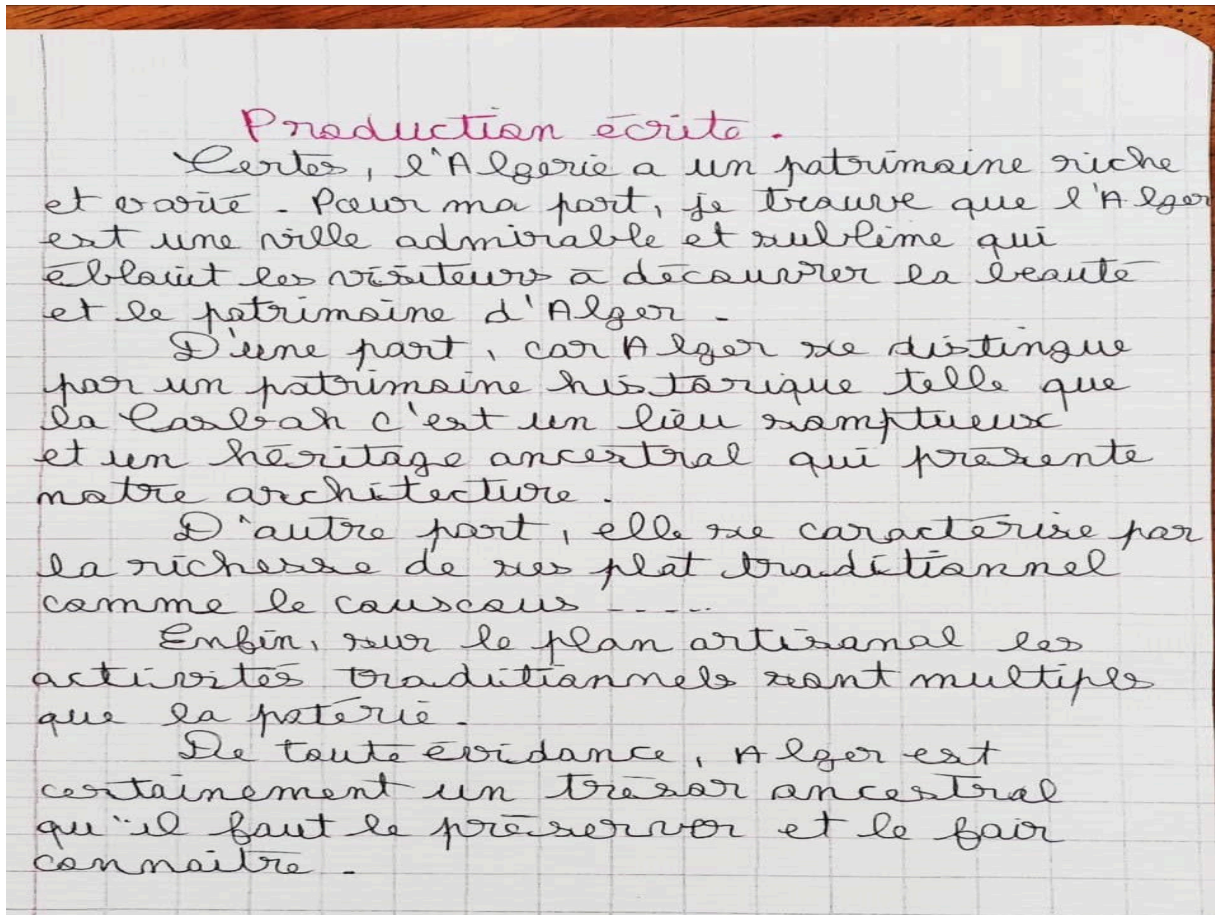 Production écrite.
Certes, l'Algerie a un patrimoine riche
et varié. Pour ma part, je trouve que l'Alger
est une ville admirable et sublime qui
éblouit les visiteurs à découvrer la beauté
et le patrimoine d'Alger.
D'une part, car Alger se distingue
par un patrimoine historique telle que
la Casbah c'est un lieu somptueux
et un héritage ancestral qui présente
notre architecture.
D'autre part, elle se caractérise par
la richesse de ses plat traditionnel
comme le couscous .....
Enfin, sur le plan artisanal les
activités traditionnels sont multiples
que la poterie.
De toute évidance, Alger est
certainement un trésor ancestral
qu'il faut le préserver et le fair
connaitre.